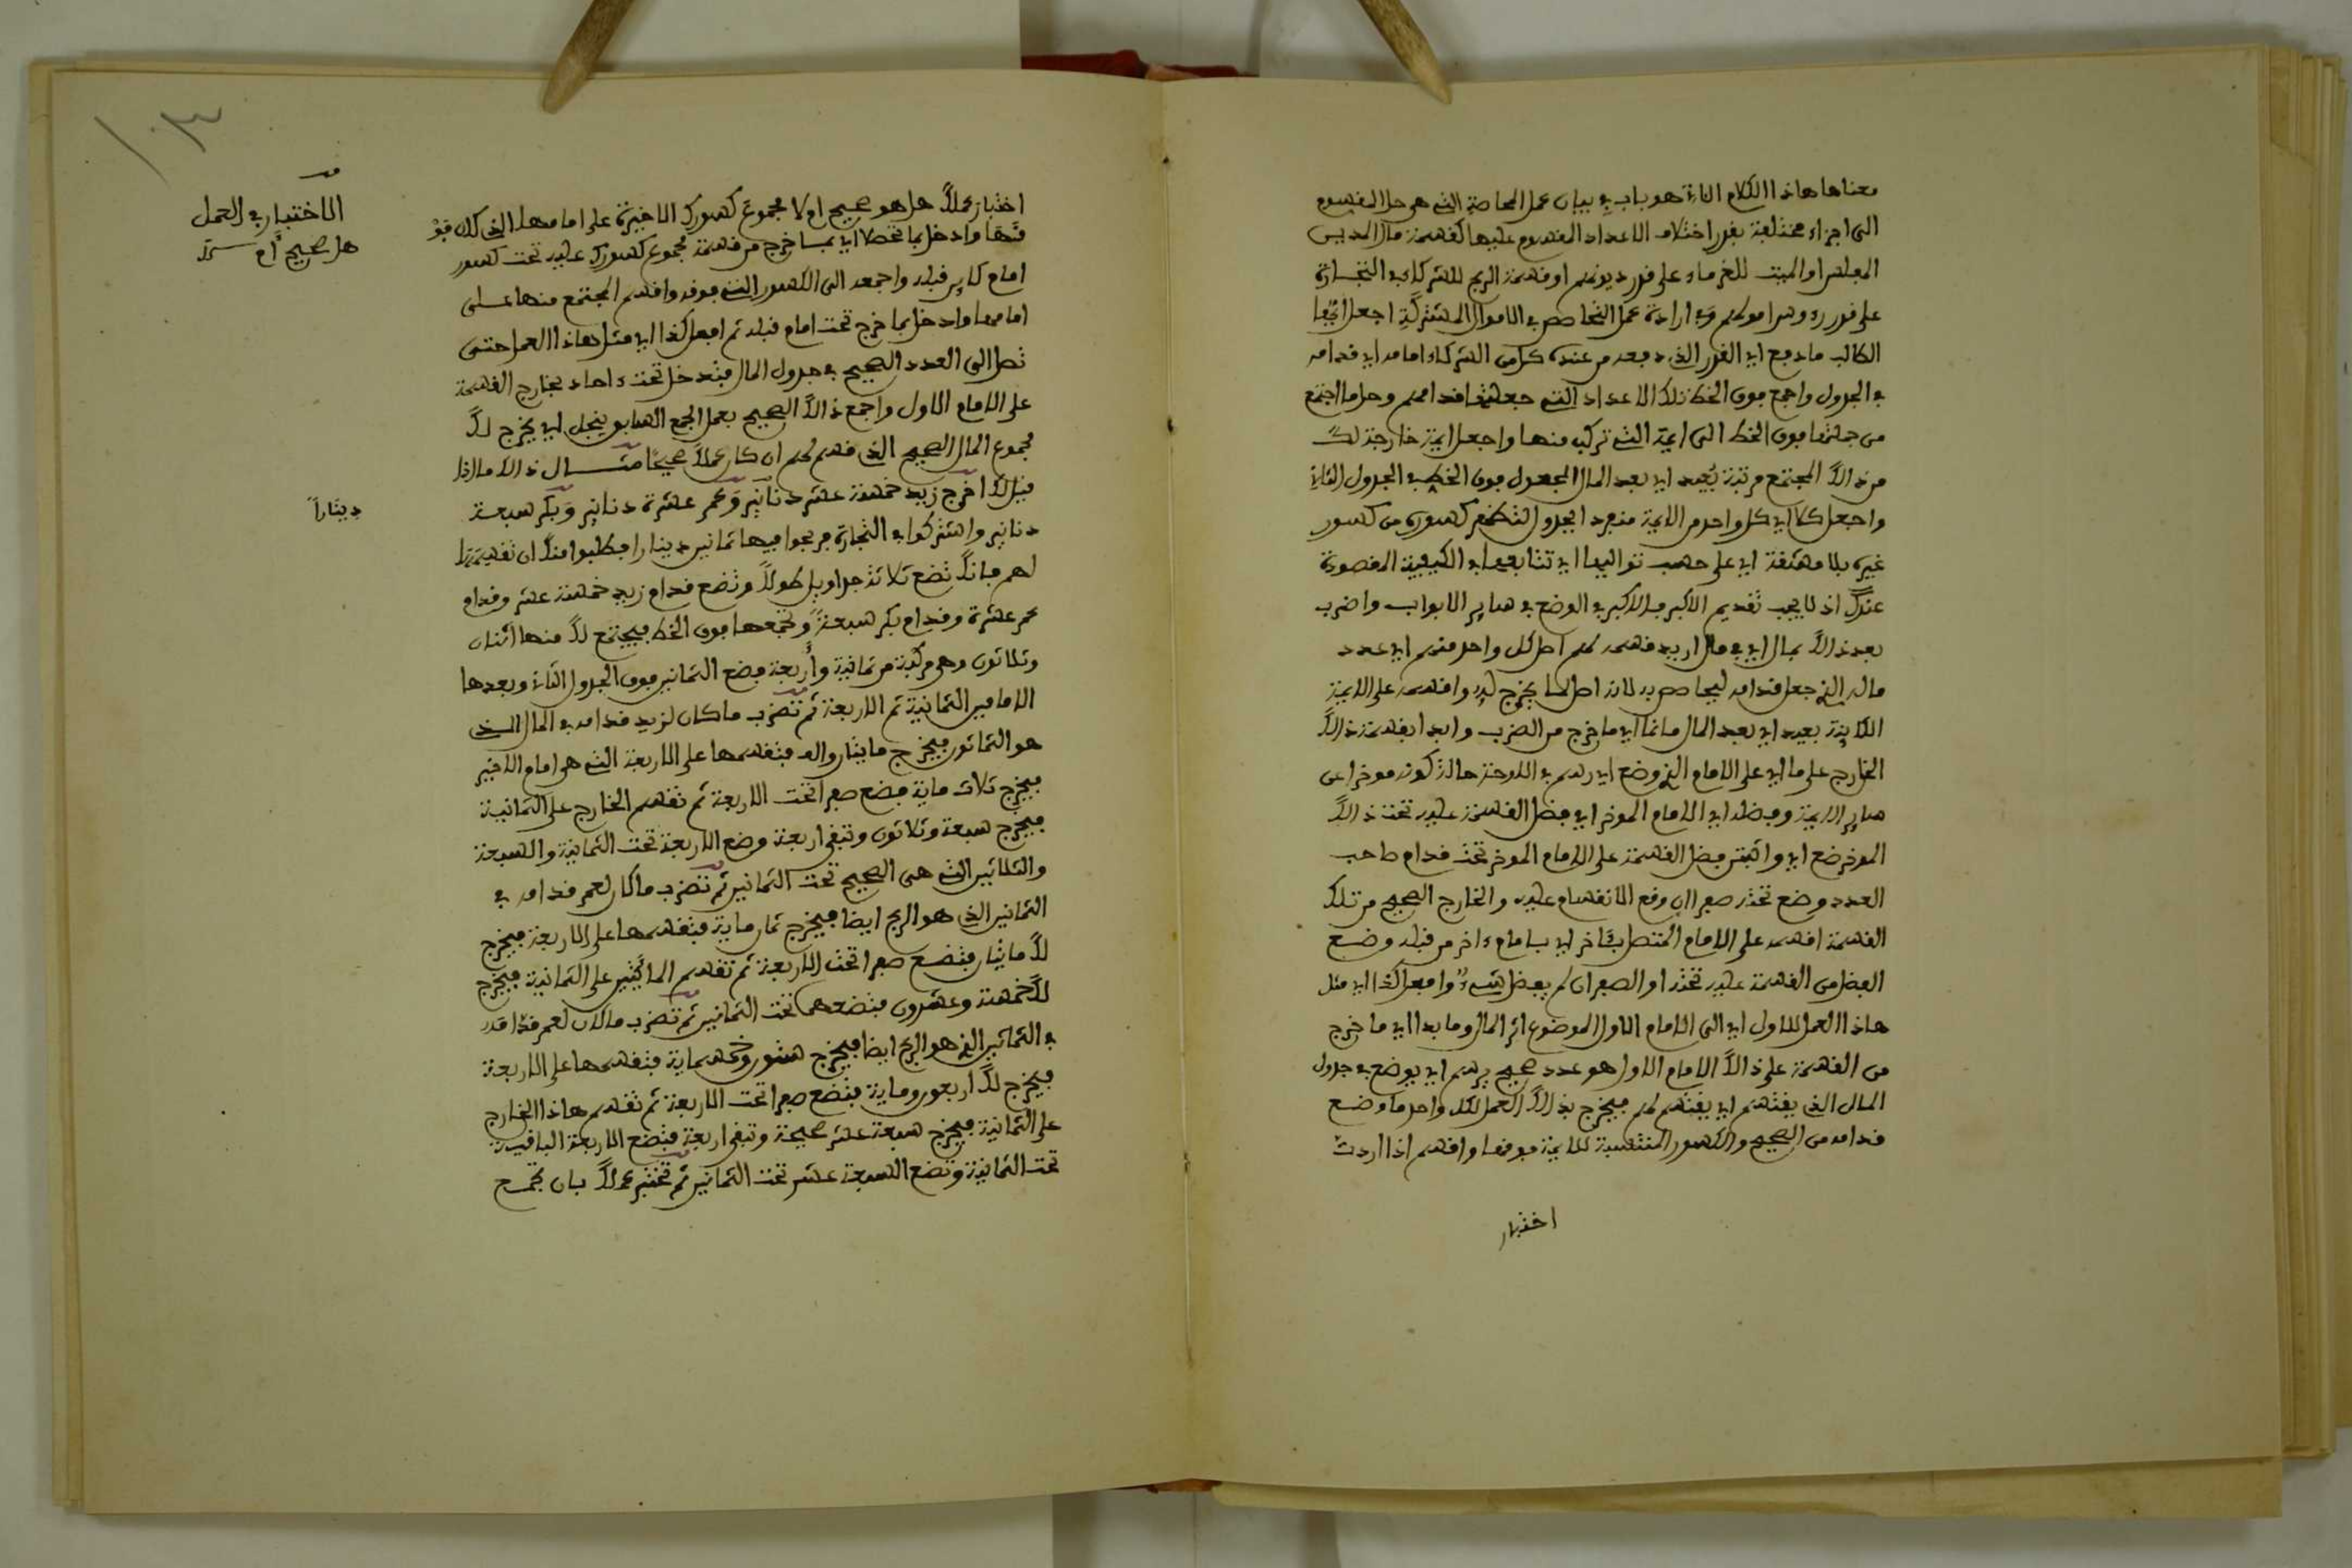 معناها هاذا الكلام الاتي هو باب في بيان عمل المحاصة التي هي حل المقسوم
الى اجزاء مختلفة بقدر اختلاف الاعداد المقسوم عليها كقسمة مال المديس
المفلس او الميت للغرماء على قدر ديونهم او قسمة الربح للشركاء في التجارة
على قدر رءوس اموالهم وفي ارادة عمل التحاصص في الاموال المشتركة اجعل ايها
الطالب ما دفع اي القدر الذي دفعه من عنده كل من الشركاء امامه اي قدامه
في الجدول واجمع فوق الخط تلك الاعداد التي جعلتها قدامهم وحل ما اجتمع
من جملتها فوق الخط الى ايمة التي تركب منها واجعل ايمة خارجة لك
من ذالك المجتمع مرتبة بعيد اي بعد المال المجعول فوق الخط في الجدول الثاني
واجعل كلا اي كل واحد من الايمة منفرد الجدول لتضع كسوره من كسور
غيره بلا مشقة اي على حسب تواليها اي تتابعها في الكيفية المقصودة
عندك اذ لا يجب تقديم الاكبر فالاكبر في الوضع في ساير الابواب واضرب
بعد ذالك بمال اي في مال اريد قسمه لهم اصل كل واحد منهم اي عدد
ماله الذي جعل قدامه ليحاصص به لانه اصل لما يخرج له واقسمه على الايمة
الكاينة بعيد اي بعد المال مانما اي ما خرج من الضرب وابدا بقسمة ذالك
الخارج على ما اي على الامام الذي وضع اي رسم في اللوحة حالة كونه موخرا عن
ساير الايمة وفضله اي الامام الموخر اي فضل القسمة عليه تحت ذالك
الموخر ضع اي واثبت فضل القسمة على الامام الموخر تحت قدام صاحب
العدد وضع تحته صفرا ان وقع الانقسام عليه والخارج الصحيح من تلك
القسمة اقسمه على الامام المتصل بآخر اي بامام ءاخر من قبله وضع
الفضل من القسمة عليه تحته او الصفر ان لم يفضل شيء وافعل كذا اي مثل
هاذا العمل للاول اي الى الامام الاول الموضوع اثر المال وما بدا اي ما خرج
من القسمة على ذالك الامام الاول هو عدد صحيح يرسم اي يوضع في جدول
المال الذي يقتسم اي يقتسم لهم فيخرج بذالك العمل لكل واحد ما وضع
قدامه من الصحيح والكسور المنتسبة للايمة فوقها واقسم اذا اردت
اختبار
١٠٣
اختبار عملك هل هو صحيح ام لا مجموع كسورك الاخيرة على امامها الذي كان فوْ
قها وادخل بما تحصل اي بما خرج من قسمة مجموع كسورك عليه تحت كسور
امام كاين قبله واجمعه الى الكسور التي فوقه واقسم المجتمع منها على
امامها وادخل بما خرج تحت امام قبله ثم افعل كذا اي مثل هاذا العمل حتى
تصل الى العدد الصحيح في جدول المال فتدخل تحت ءاحاد بخارج القسمة
على الامام الاول واجمع ذالك الصحيح بعمل الجمع السابق ينجل اي يخرج لك
مجموع المال الصحيح الذي قسم لهم ان كان عملك صحيحا مثال ذالك ما اذا
قيل لك اخرج زيد خمسة عشر دنانير وعمر عشرة دنانير وبكر سبعة
دنانير واشتركوا في التجارة فربحوا فيها ثمانين دينارا فطلبوا منك ان تقسمها
لهم فانك تضع ثلاثة جداويل طولا وتضع قدام زيد خمسة عشر وقدام
عمر عشرة وقدام بكر سبعة وتجمعها فوق الخط فيجتمع لك منها اثنان
وثلاثون وهي مركبة من ثمانية واربعة فضع الثمانين فوق الجدول الثاني وبعدها
الامامين الثمانية ثم الاربعة ثم تضرب ما كان لزيد قدامه في المال الذي
هو الثمانون فيخرج مايتان والف فتقسمها على الاربعة التي هي امام الاخير
فيخرج ثلاث ماية فضع صفرا تحت الاربعة ثم تقسم الخارج على الثمانية
فيخرج سبعة وثلاثون وتبقى اربعة وضع الاربعة تحت الثمانية والسبعة
والثلاثين التي هي الصحيح تحت الثمانين ثم تضرب ما كان لعمر قدامه في
الثمانين الذي هو الربح ايضا فيخرج ثمان ماية فتقسمها على الاربعة فيخرج
لك مايتان فتضع صفرا تحت الاربعة ثم تقسم المايتين على الثمانية فيخرج
لك خمسة وعشرون فتضعهما تحت الثمانين ثم تضرب ما كان لعمر قدامه
في الثمانين الذي هو الربح ايضا فيخرج ستون وخمسماية فتقسمها على الاربعة
فيخرج لك اربعون وماية فتضع صفرا تحت الاربعة ثم تقسم هاذا الخارج
على الثمانية فيخرج سبعة عشر صحيحة وتبقى اربعة فتضع الاربعة الباقية
تحت الثمانية وتضع السبعة عشر تحت الثمانين ثم تختبر عملك بان تجمع
الاختبار في العمل
هل صحيح ام
دينارا